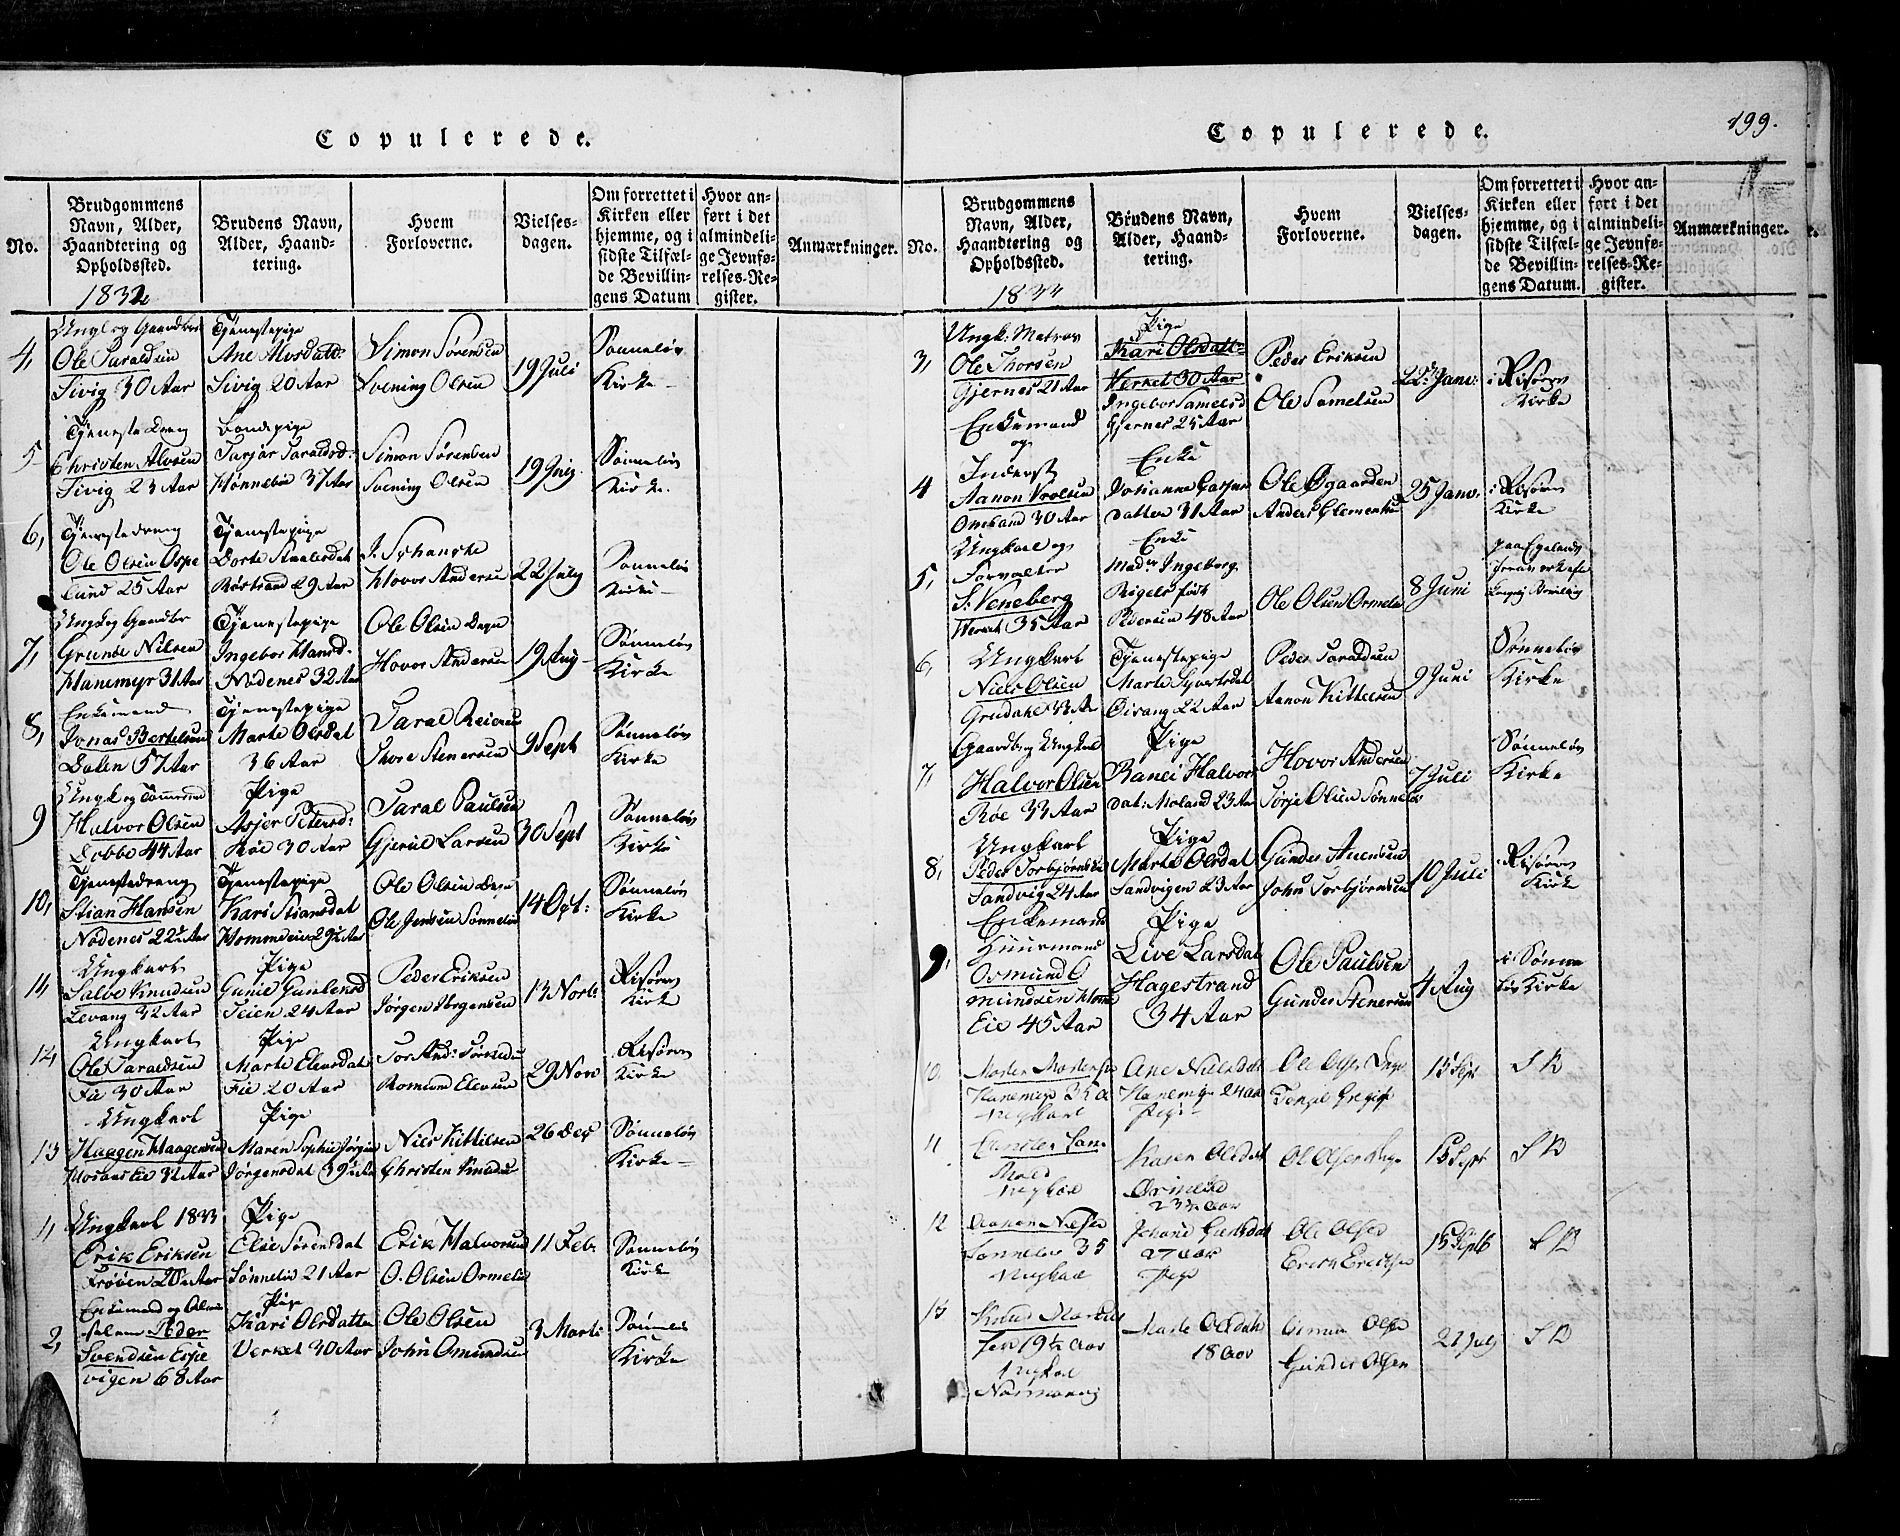 Copulerede.
No.
Brudgommens
Navn, Alder,
Haandtering og
Opholdssted.
Brudens Navn,
Alder, Haand-
tering.
Hvem
Forloverne.
Vielses-
dagen.
Om forrettet i
Kirken eller
hjemme, og i
sidste Tilfæl-
de Bevillin-
gens Datum
Hvor an-
ført i det
almindeli-
ge Jevnfø-
relses-Re-
gister.
Anmærkninger.
1832
4,
Ole Taraldsen
Sivig 30 Aar
Tjenestepige
Ane Alvsdatt:
Sivig 20 Aar
Simon Sørensen
Svening Olsen
19 Juli
Sønneløv
Kirke
5
Tjeneste Dreng
Christen Alvsen
Sivig 23 Aar
Bondepige
Tarjær Taraldsd:
Hønnebøe 37 Aar
Simon Sørensen
Svening Olsen
19
Sønneløv
Kirke.
6,
Tjenestedreng
Ole Olsen Ospe
lund 25 Aar
Tjenestepige
Dorte
29 Aar
Hovor Andersen
22 July
Sønneløv
Kirke
7,
Grunde Nilsen
Hanemyr 31 Aar
Tjenestepige
Ingebor Hansd:
Nødenes 32 Aar
Ole Olsen Degn
Hovor Andersen
19 Aug
Sønneløv
Kirke
8,
Enkemand
Jonas Bertelsen
Dalen 57 Aar
Tjenestepige
Marte Olsdat
36 Aar
Taral Reiersen
Thore Stenersen
9 Sept
Sønneløv
Kirke
9
Halvor Olsen
Dobbe 44 Aar
Pige
Asjer Petersd:
Røe 30 Aar
Taral Paulsen
Gjerul Larsen
30 Sept
Sønneløv
Kirke
10,
Tjenestedreng
Stian Hansen
Nødenes 22 Aar
Tjenestepige
Kari Stiansdat
29 Aar
Ole Olsen Degn
Ole Jensen Sønneløv
14 Oct:
Sønneløv
Kirke
11
Ungkarl
Salve Knudsen
Levang 32 Aar
Pige
Gunlensd
Teien 24 Aar
Peder Eriksen
Jørgen Jørgensen
13 Novb:
Risøers
Kirke
12,
Ungkarl
Ole Taraldsen
Fie 30 Aar
Pige
Marte Elensdat
Fie 20 Aar
29 Nov
Risøers
Kirke
13
Ungkarl
Haagen Haagensen
Pige
Maren Sophie Jørgine
Jørgensdat
Niels Kittilsen
Christen Knudsen
26 Dec
Sønneløv
Kirke
1,
Ungkarl 1833
Erik Eriksen
Pige
Else Sørensdat
Sønneløv 21 Aar
Erik Halvorsen
O. Olsen Ormelie
11 Feb.
Sønneløv
Kirke
2,
Enkemand og
Peder
Svendsen Espe
vigen 68 Aar
Pige
Kari Olsdatter
Verket 30 Aar
Ole Olsen
John Omundsen
3 Marts
Sønneløv
Kirke
Copulerede.
199.
No.
Brudgommens
Navn, Alder,
Haandtering og
Opholdssted.
Brudens Navn,
Alder, Haand-
tering.
Hvem
Forloverne.
Vielses-
dagen.
Om forrettet i
Kirken eller
hjemme, og i
sidste Tilfæl-
de Bevillin-
gens Datum.
Hvor an-
ført i det
almindeli-
ge Jevnfø-
relses-Re-
gister.
Anmærkninger.
1833
3,
Ungk: Matros
Ole Thorsen
Gjernes 21 Aar
Pige
Kari Olsdatt:
Verket 30 Aar
Ingebor Samelsd
Gjernes 25 Aar
Peder Eriksen
Ole Samelsen
22 Janv:
i Risøers
Kirke
4
Enkemand
og
Inderst
Aanon Vrolsen
Omland 30 Aar
Enke
datter 31 Aar
Ole Øgaarden
Anders Clementsen
25 Janv:
i Risøers
Kirke
5,
Ungkarl og
Forvalter
S: Veneberg
Verket 35 Aar
Enke
Mad: Ingeborg
Rigels født
Pedersen 48 Aar
Ole Olsen Ormelie
8 Juni
paa Egelands
6,
Ungkarl
Niels Olsen
Tjenestepige
Marte Syvertsdat
Øisang 22 Aar
Peder Taraldsen
Aanon Kittelsen
9 Juni
Sønneløv
Kirke
7,
Gaardbr Ungkarl
Halvor Olsen
Røe 33 Aar
Pige
Ranei Halvors
dat: Moland 23 Aar
Hovor Andersen
Tørje Olsen Sønneløv
7 Juli
Sønneløv
Kirke
8,
Ungkarl
Peder Torbjørnsen
Sandvig 24 Aar
Pige
Marte Olsdat
Sandvigen 23 Aar
Gunder Auensen
John Torbjørnsen
10 Juli
i Risøers
Kirke
9,
Enkemand
Huusmand
Osmund O
mundsen
Eie 45 Aar
Pige
Live Larsdat
Hagestrand
34 Aar
Ole Paulsen
Gunder Stenersen
4 Aug
i Sønne
løv Kirke
10
Hanemyr 35 a
Ungkarl
Ane Nielsdat
Hanemyr 24 aar
Pige
Ole Olsen Degn
15 Sept
S K
11
Ungkarl
Karen Olsdat
Ormelie
23½ aar
Ole Olsen Degn
15 Sept
S K
12
Aanon Nielsen
Sønneløv 35
Ungkarl
27 aar
Pige
Ole Olsen
Erich Erichsen
15 Sept
S K
13
Knud
19½ aar
Ungkarl
Marte Olsdat
18 aar
Gunder Olsen
21 July
S K